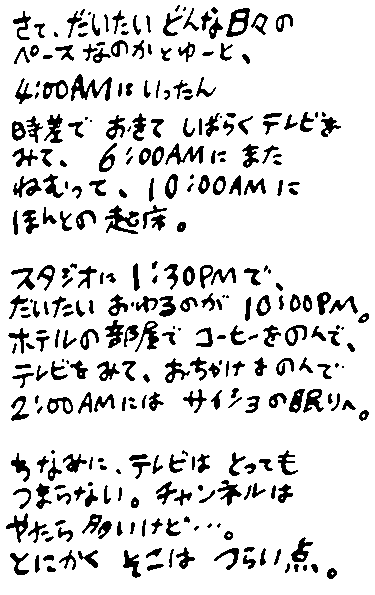 さて、だいたい どんな日々の
ペースなのかとゆーと、
4:00AMにいったん
時差で おきて しばらく テレビを
みて、 6:00AMに また
ねむって、 10:00AMに
ほんとの 起床。
スタジオに 1:30PMで、
だいたい おわるのが 10:00PM。
ホテルの 部屋で コーヒーをのんで、
テレビをみて、 おちゃけものんで
2:00AMには サイショの眠りへ。
ちなみに、テレビは とっても
つまらない。 チャンネルは
やたら 多いけど…。
とにかく そこは つらい点。